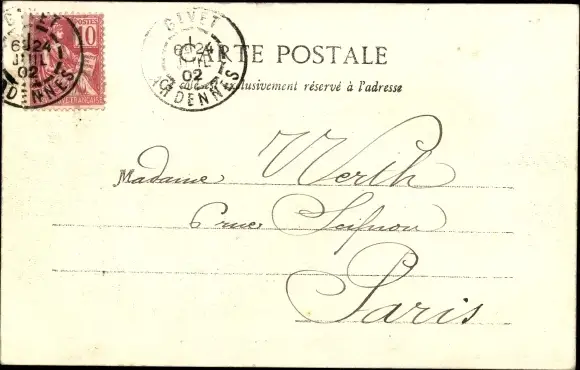 GIVET
6E24
JUIL
02
ARDENNES
POSTES
10
GIVET
6E24
JUIL
02
ARDENNES
CARTE POSTALE
exclusivement réservé à l'adresse
Madame Werth
6 rue
Paris